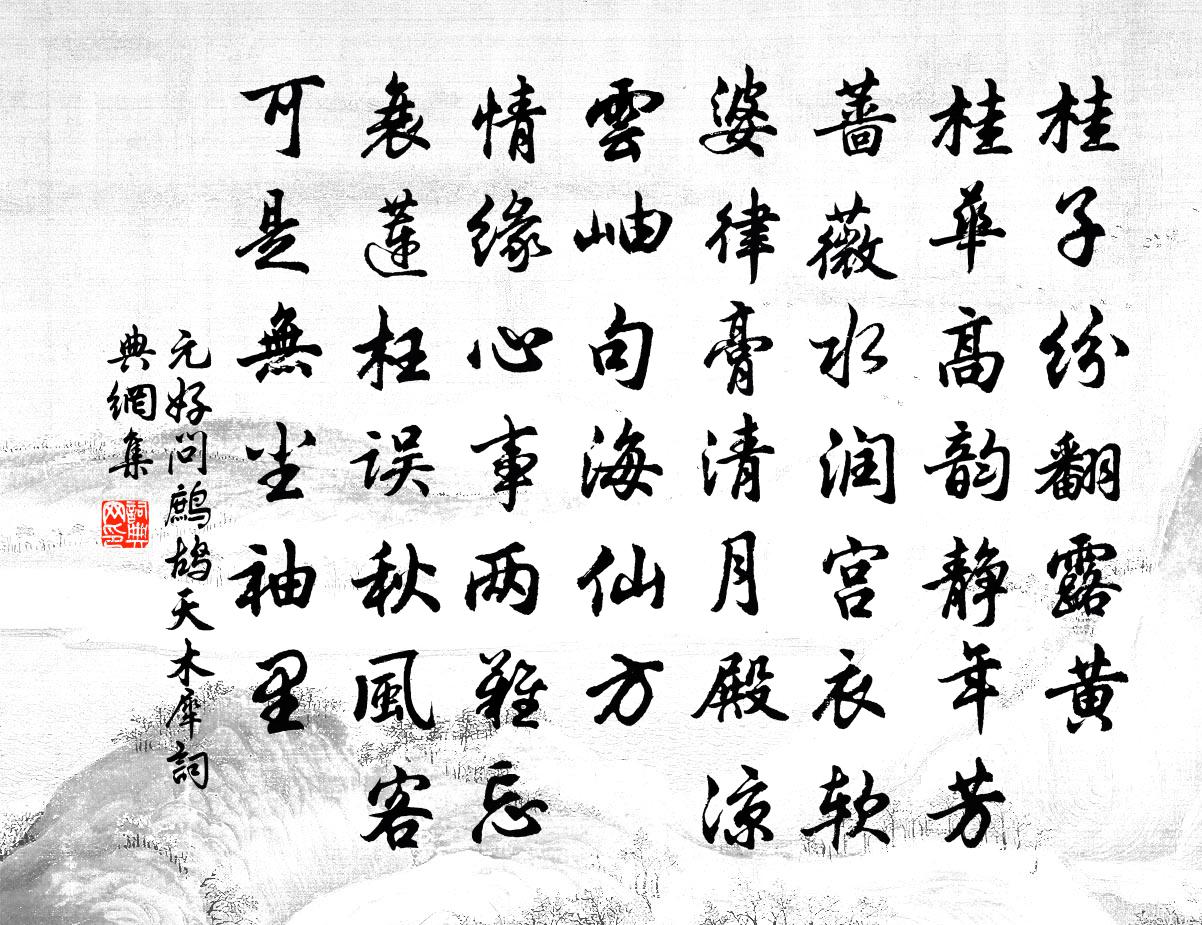 桂子纷翻露黄
桂華高韵静年芳
蔷薇水润宫衣软
婆律膏清月殿凉
雲岫句海仙方
情缘心事两難忘
衰莲枉误秋風客
可是無尘袖里
元好问鷓鴣天木犀詞
典網集
詞典网印